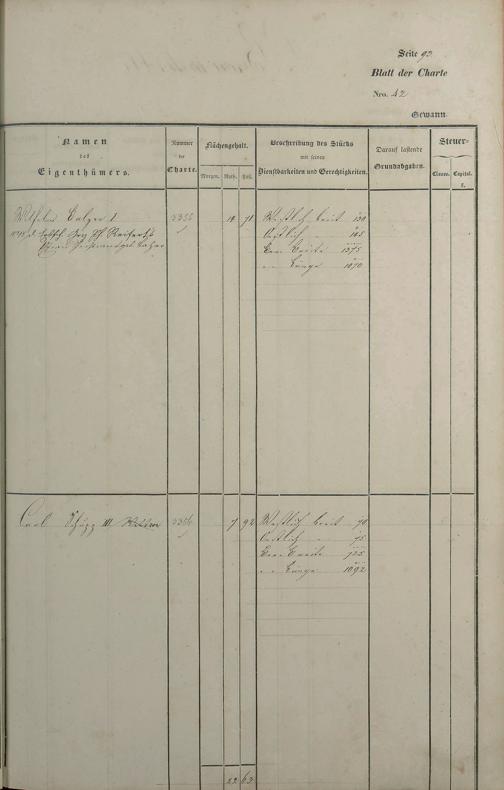 Seite 92
Blatt der Charte
Nro. 42
Gewann
Namen
des
Eigenthümers.
Nummer
der
Charte.
Flächengehalt.
Morgen. Ruth. Fuß.
Beschreibung des Stücks
mit seinen
Dienstbarkeiten und Gerechtigkeiten.
Darauf lastende
Grundabgaben.
Steuer-
Classe. Capital.
f.
Wilhelm Balzer I
3355
14 71
Westlich breit 130
Oestlich " 145
Breite 1375
" Länge 1070
Carl Schupp III
3356
7 92
Westlich breit 70
Oestlich " 75
Breite 725
" Länge 1092
22 63